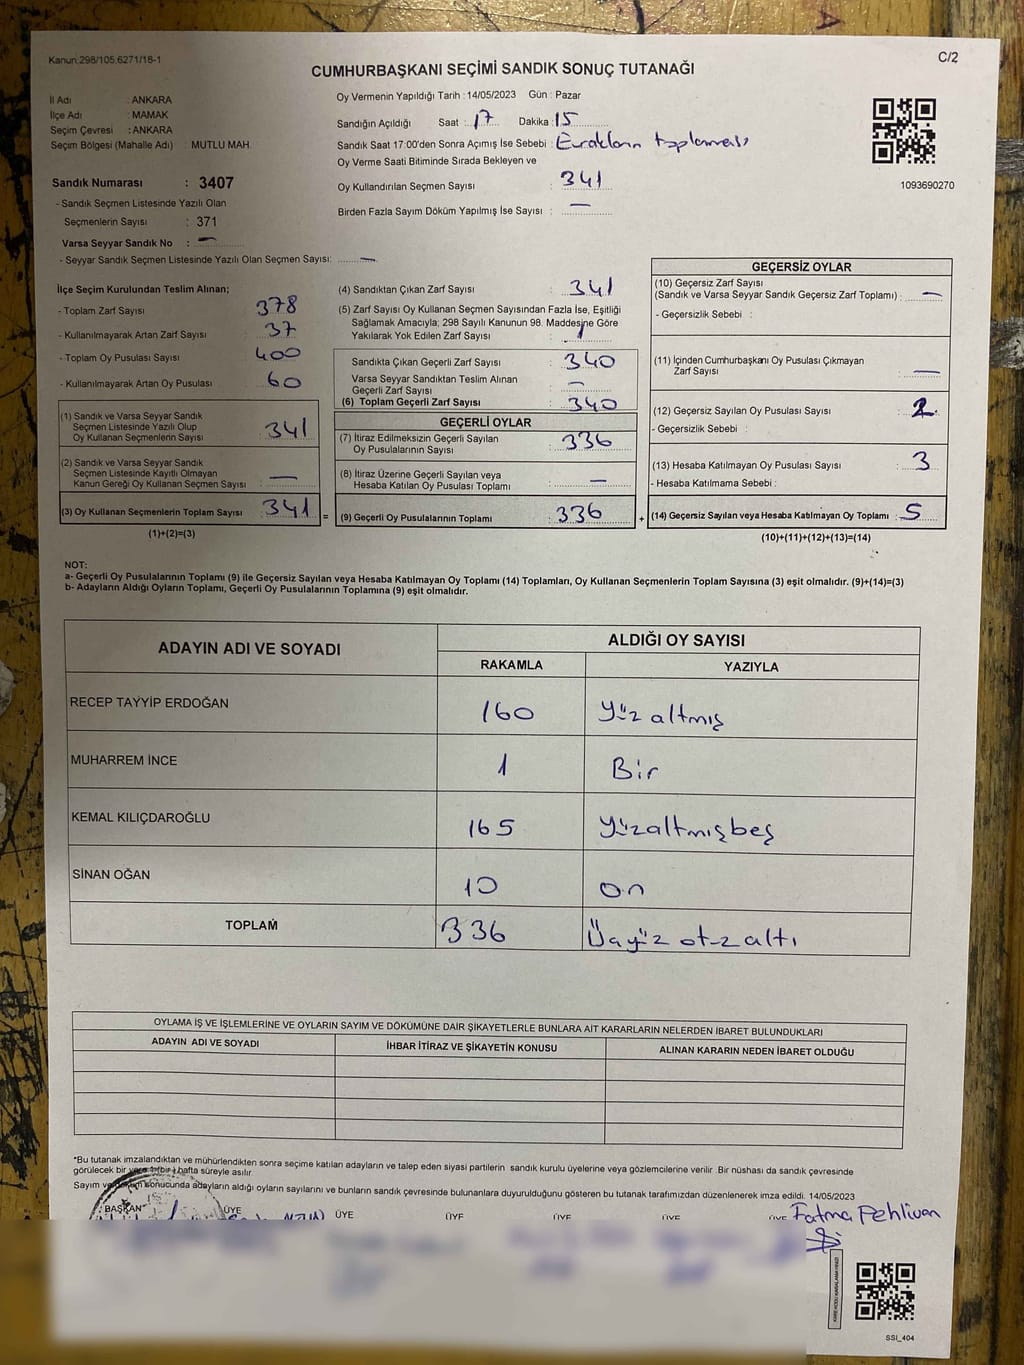 Kanun:298/105,6271/18-1
C/2
CUMHURBAŞKANI SEÇİMİ SANDIK SONUÇ TUTANAĞI
İl Adı : ANKARA
İlçe Adı : MAMAK
Seçim Çevresi : ANKARA
Seçim Bölgesi (Mahalle Adı) : MUTLU MAH.
Sandık Numarası : 3407
- Sandık Seçmen Listesinde Yazılı Olan
Seçmenlerin Sayısı : 371
Varsa Seyyar Sandık No : —
- Seyyar Sandık Seçmen Listesinde Yazılı Olan Seçmen Sayısı: —
Oy Vermenin Yapıldığı Tarih : 14/05/2023 Gün : Pazar
Sandığın Açıldığı Saat : 17 Dakika : 15
Sandık Saat 17:00'den Sonra Açımış İse Sebebi : Evrakların toplanması
Oy Verme Saati Bitiminde Sırada Bekleyen ve
Oy Kullandırılan Seçmen Sayısı : 341
Birden Fazla Sayım Döküm Yapılmış İse Sayısı : —
1093690270
İlçe Seçim Kurulundan Teslim Alınan;
- Toplam Zarf Sayısı : 378
- Kullanılmayarak Artan Zarf Sayısı : 37
- Toplam Oy Pusulası Sayısı : 400
- Kullanılmayarak Artan Oy Pusulası : 60
(1) Sandık ve Varsa Seyyar Sandık
Seçmen Listesinde Yazılı Olup
Oy Kullanan Seçmenlerin Sayısı : 341
(2) Sandık ve Varsa Seyyar Sandık
Seçmen Listesinde Kayıtlı Olmayan
Kanun Gereği Oy Kullanan Seçmen Sayısı : —
(3) Oy Kullanan Seçmenlerin Toplam Sayısı : 341 =
(1)+(2)=(3)
(4) Sandıktan Çıkan Zarf Sayısı : 341
(5) Zarf Sayısı Oy Kullanan Seçmen Sayısından Fazla İse, Eşitliği
Sağlamak Amacıyla; 298 Sayılı Kanunun 98. Maddesine Göre
Yakılarak Yok Edilen Zarf Sayısı : 1
Sandıkta Çıkan Geçerli Zarf Sayısı : 340
Varsa Seyyar Sandıktan Teslim Alınan
Geçerli Zarf Sayısı : —
(6) Toplam Geçerli Zarf Sayısı : 340
GEÇERLİ OYLAR
(7) İtiraz Edilmeksizin Geçerli Sayılan
Oy Pusulalarının Sayısı : 336
(8) İtiraz Üzerine Geçerli Sayılan veya
Hesaba Katılan Oy Pusulası Toplamı : —
(9) Geçerli Oy Pusulalarının Toplamı : 336 +
GEÇERSİZ OYLAR
(10) Geçersiz Zarf Sayısı
(Sandık ve Varsa Seyyar Sandık Geçersiz Zarf Toplamı) : —
- Geçersizlik Sebebi :
(11) İçinden Cumhurbaşkanı Oy Pusulası Çıkmayan
Zarf Sayısı : —
(12) Geçersiz Sayılan Oy Pusulası Sayısı : 2
- Geçersizlik Sebebi :
(13) Hesaba Katılmayan Oy Pusulası Sayısı : 3
- Hesaba Katılmama Sebebi :
(14) Geçersiz Sayılan veya Hesaba Katılmayan Oy Toplamı : 5
(10)+(11)+(12)+(13)=(14)
NOT:
a- Geçerli Oy Pusulalarının Toplamı (9) ile Geçersiz Sayılan veya Hesaba Katılmayan Oy Toplamı (14) Toplamları, Oy Kullanan Seçmenlerin Toplam Sayısına (3) eşit olmalıdır. (9)+(14)=(3)
b- Adayların Aldığı Oyların Toplamı, Geçerli Oy Pusulalarının Toplamına (9) eşit olmalıdır.
ADAYIN ADI VE SOYADI
ALDIĞI OY SAYISI
RAKAMLA YAZIYLA
RECEP TAYYİP ERDOĞAN 160 Yüz altmış
MUHARREM İNCE 1 Bir
KEMAL KILIÇDAROĞLU 165 Yüzaltmışbeş
SİNAN OĞAN 10 on
TOPLAM 336 Üçyüz otuz altı
OYLAMA İŞ VE İŞLEMLERİNE VE OYLARIN SAYIM VE DÖKÜMÜNE DAİR ŞİKAYETLERLE BUNLARA AİT KARARLARIN NELERDEN İBARET BULUNDUKLARI
ADAYIN ADI VE SOYADI İHBAR İTİRAZ VE ŞİKAYETİN KONUSU ALINAN KARARIN NEDEN İBARET OLDUĞU
*Bu tutanak imzalandıktan ve mühürlendikten sonra seçime katılan adayların ve talep eden siyasi partilerin sandık kurulu üyelerine veya gözlemcilerine verilir. Bir nüshası da sandık çevresinde
görülecek bir yere 1 (bir) hafta süreyle asılır.
Sayım ve döküm sonucunda adayların aldığı oyların sayılarını ve bunların sandık çevresinde bulunanlara duyurulduğunu gösteren bu tutanak tarafımızdan düzenlenerek imza edildi. 14/05/2023
BAŞKAN ÜYE ÜYE ÜYE ÜYE ÜYE ÜYE
Fatma Pehlivan
SSI_404